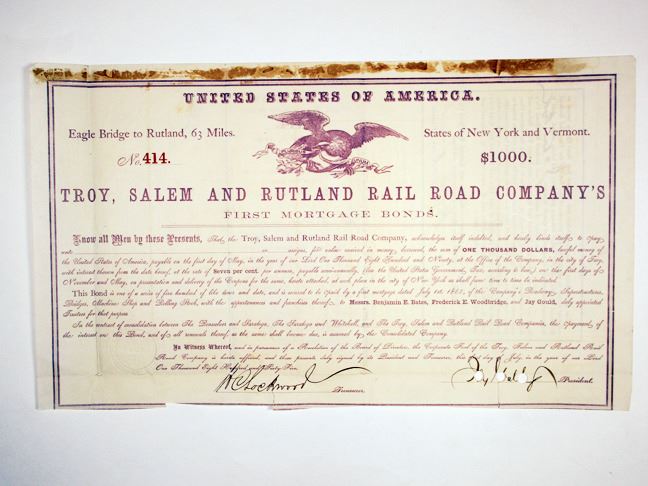 UNITED STATES OF AMERICA.
Eagle Bridge to Rutland, 63 Miles.
States of New York and Vermont.
No. 414.
$1000.
TROY, SALEM AND RUTLAND RAIL ROAD COMPANY'S
FIRST MORTGAGE BONDS.
Know all Men by these Presents, That the Troy, Salem and Rutland Rail Road Company, acknowledges itself indebted, and hereby binds itself to pay
unto assigns, for value received in money, the sum of ONE THOUSAND DOLLARS, lawful money of
the United States of America, payable on the first day of May, in the year of our Lord One Thousand Eight Hundred and Ninety, at the Office of the Company, in the city of Troy,
with interest thereon from the date hereof, at the rate of Seven per cent. per annum, payable semi-annually, (less the United States Government, Tax, according to law,) on the first days of
November and May, on presentation and delivery of the Coupons for the same, hereto attached, at such place in the city of New York as shall from time to time be indicated.
This Bond is one of a series of five hundred of like tenor and date, and is secured to be paid by a first mortgage dated July 1st, 1865, of the Company's Roadway, Superstructure,
Bridges, Machine Shop and Rolling Stock, with the appurtenances and franchise thereto, to Messrs. Benjamin E. Bates, Frederick E. Woodbridge, and Jay Gould, duly appointed
Trustees for that purpose.
In the contract of consolidation between The Rensselaer and Saratoga, The Saratoga and Whitehall, and The Troy, Salem and Rutland Rail Road Companies, the payment of
the interest on this Bond, and of all renewals thereof, as the same shall become due, is assumed by the Consolidated Company.
In Witness Whereof, and in pursuance of a Resolution of the Board of Directors, the Corporate Seal of the Troy, Salem and Rutland Rail
Road Company is hereto affixed, and these presents duly signed by its President and Treasurer, the first day of July, in the year of our Lord
One Thousand Eight Hundred and Sixty Five.
Lockwood
Treasurer.
President.